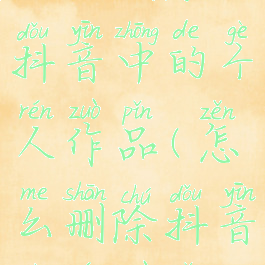 dǒu yīn zhōng de gè
抖音中的个
rén zuò pǐn zěn
人作品(怎
me shān chú dǒu yīn
么删除抖音